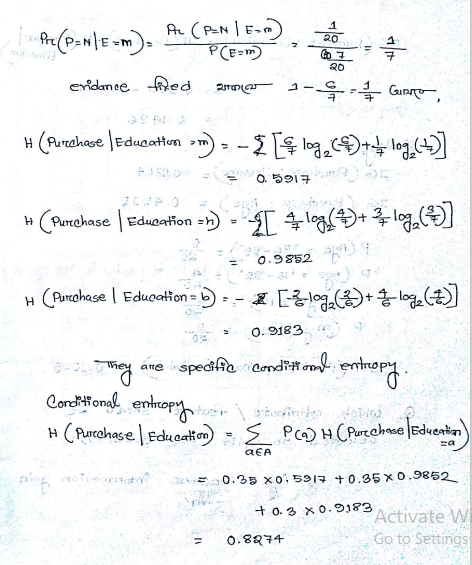 Pr(P=N|E=m) = Pr(P=N|E=m) / P(E=m) = (1/20) / (7/20) = 1/7
evidance fixed থাকলে 1 - 6/7 = 1/7
H (Purchase | Education =m) = - [6/7 log₂(6/7) + 1/7 log₂(1/7)]
= 0.5917
H (Purchase | Education =h) = - [4/7 log₂(4/7) + 3/7 log₂(3/7)]
= 0.9852
H (Purchase | Education = b) = - [2/6 log₂(2/6) + 4/6 log₂(4/6)]
= 0.9183
They are specific conditional entropy.
Conditional entropy
H (Purchase | Education) = Σ a∈A P(a) H (Purchase | Education =a)
= 0.35 x 0.5917 + 0.35 x 0.9852
+ 0.3 x 0.9183
= 0.8274
Activate W
Go to Settings